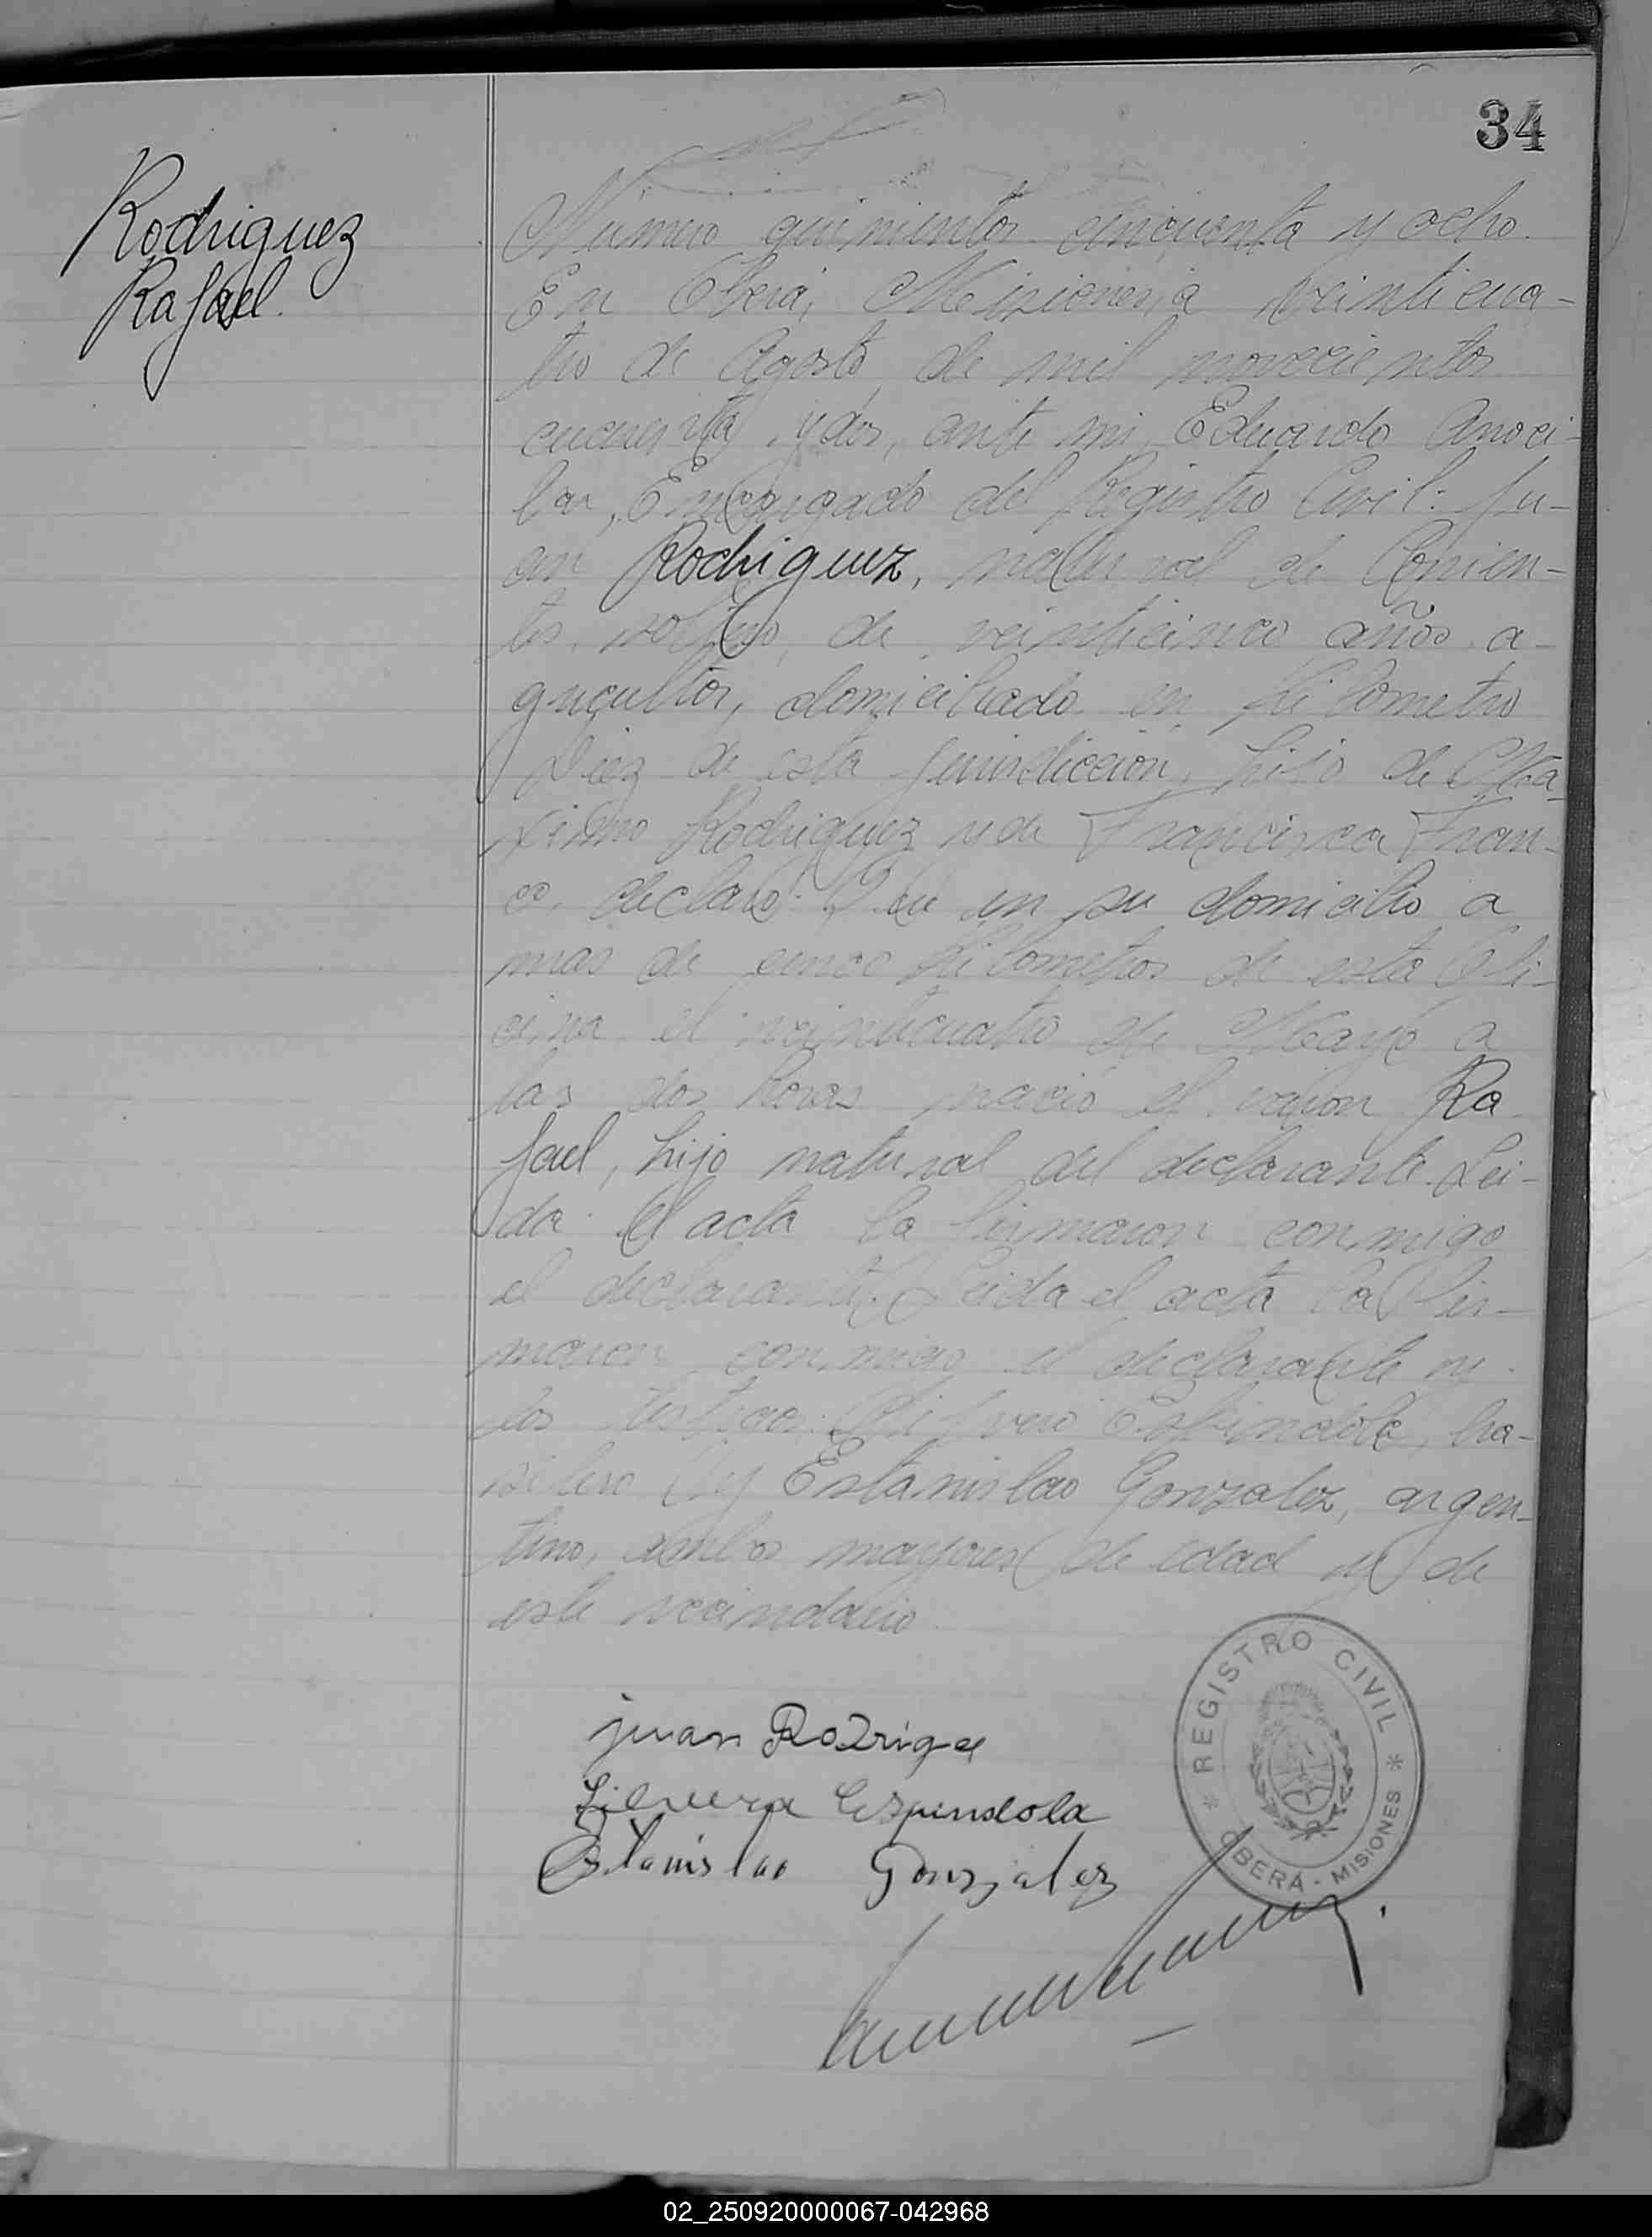 34
Rodriguez
Rafael.
Número quinientos cincuenta y ocho.
En Oberá, Misiones, a veinticua-
tro de Agosto de mil novecientos
cucuenta y dos, ante mi Eduardo
Encargado del Registro Civil: Ju-
an Rodriguez, natural de Corrien-
tes, soltero, de veinticinco años a-
gricultor, domiciliado en kilometro
Diez de esta jurisdiccion, hijo de Ma-
ximo Rodriguez y de Francisca Fran-
co, declaró: Que en su domicilio a
mas de cinco kilometros de esta Ofi-
cina el veinticuatro de Mayo a
las dos horas nació el varon Ra-
fael, hijo natural del declarante. Lei-
da el acta la firmaron conmigo
el declarante. Leida el acta la fir-
maron conmigo el declarante y
los testigos: Espindola, bra-
silero y Estanislao Gonzalez, argen-
tino, ambos mayores de edad y de
este vecindario.
REGISTRO CIVIL
* OBERÁ - MISIONES *
juan Rodrigez
Espindola
Estanislao Gonzalez
02_250920000067-042968